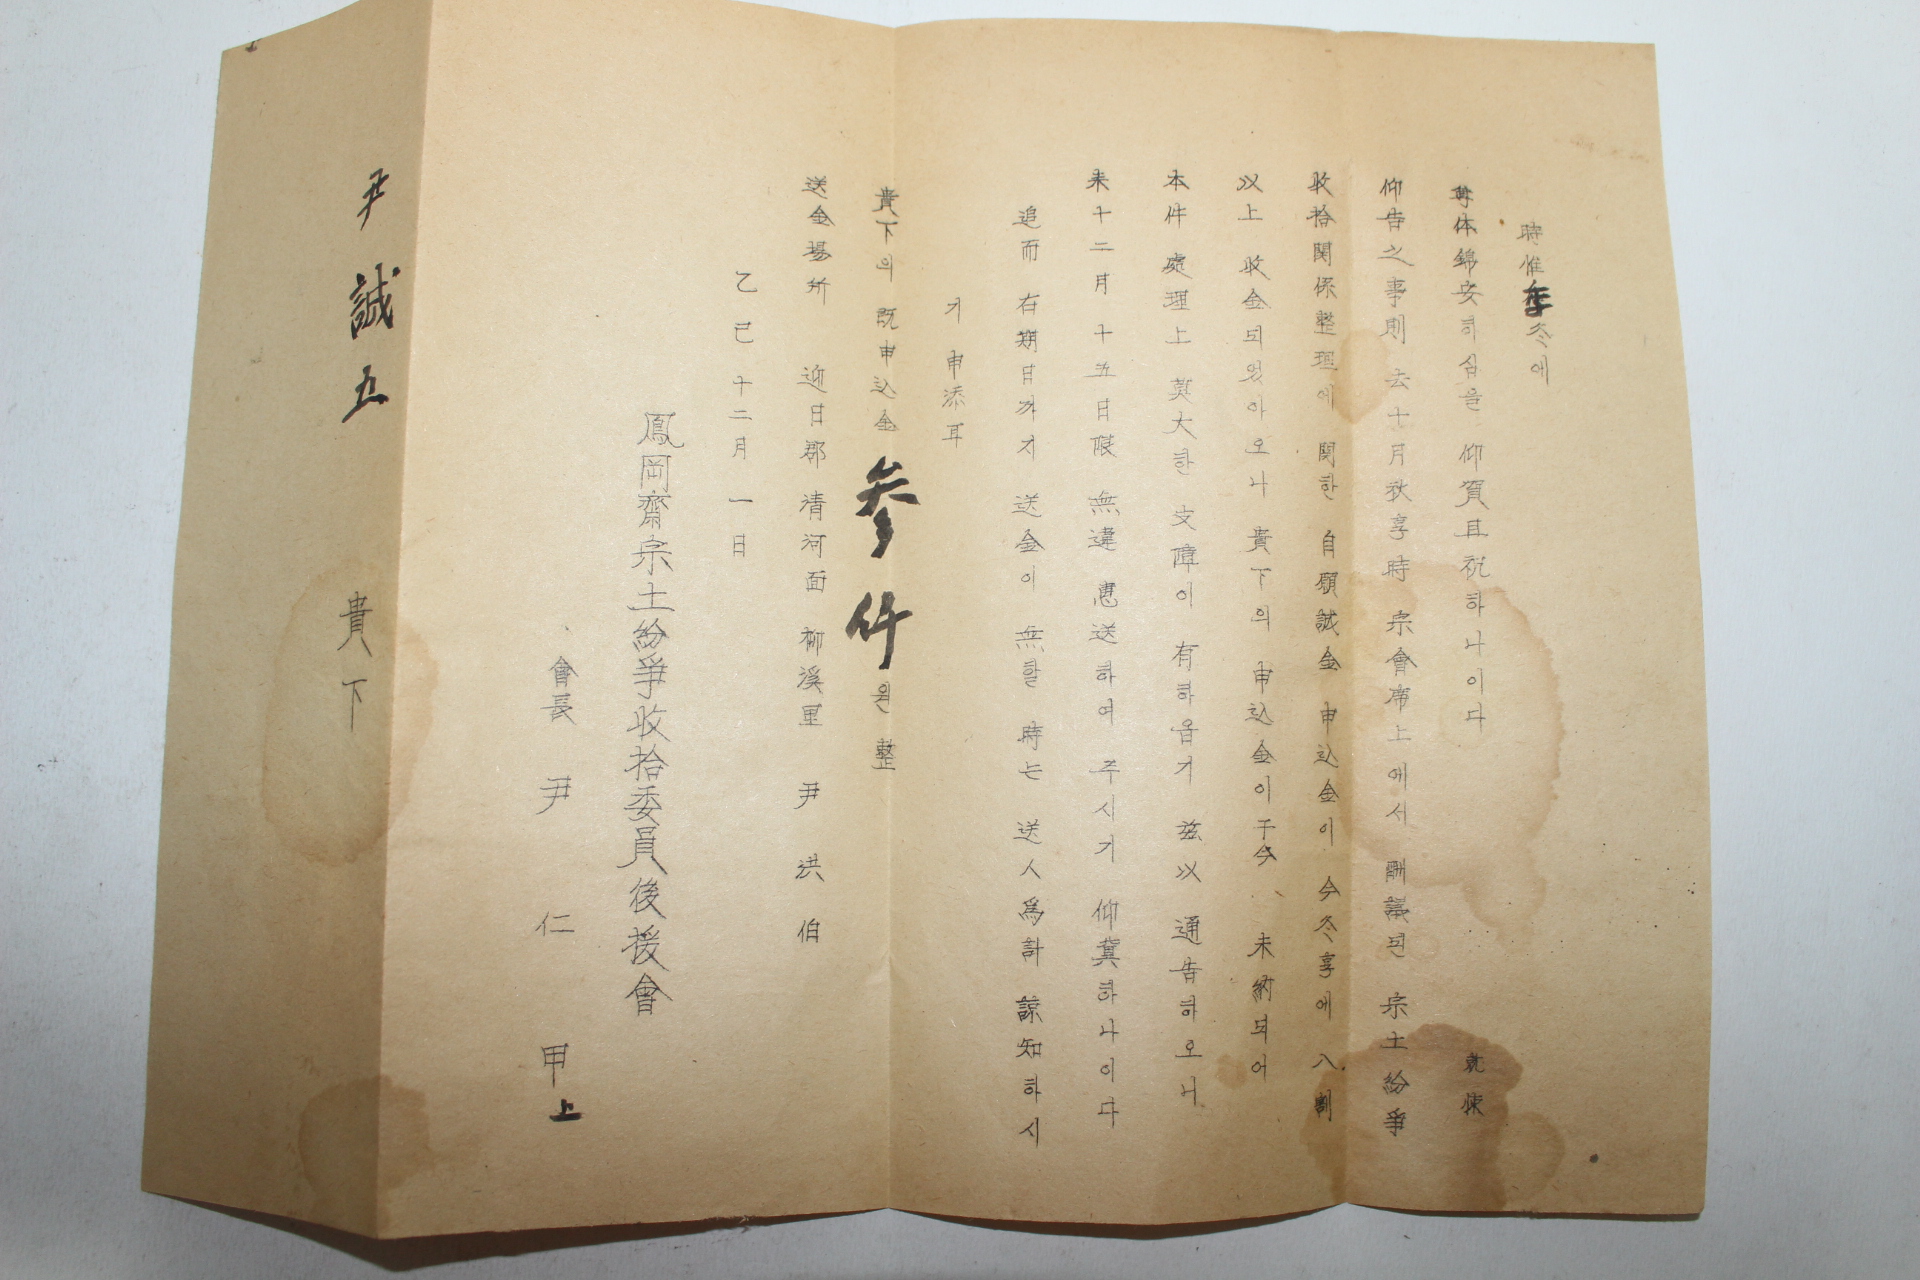 時惟季冬에
尊体錦安하심을 仰賀且祝하나이다 就悚
仰告之事則 去十月秋享時 宗會席上에서 酬議된 宗土紛爭
收拾関係整理에 関한 自願誠金 申込金이 今冬享에 八割
以上 收金되었아오나 貴下의 申込金이 于今 未納되어
本件處理上 莫大한 支障이 有하옵기 玆以 通告하오니
来十二月十五日限 無違 惠送하여 주시기 仰冀하나이다
追而 右期日까지 送金이 無할 時는 送人爲計 諒知하시
기 申添耳
貴下의 既申込金 参仟원 整
送金場所 迎日郡 清河面 柳溪里 尹洪伯
乙巳十二月一日
鳳岡齋宗土紛爭收拾委員後援會
會長 尹仁甲 上
尹誠五 貴下